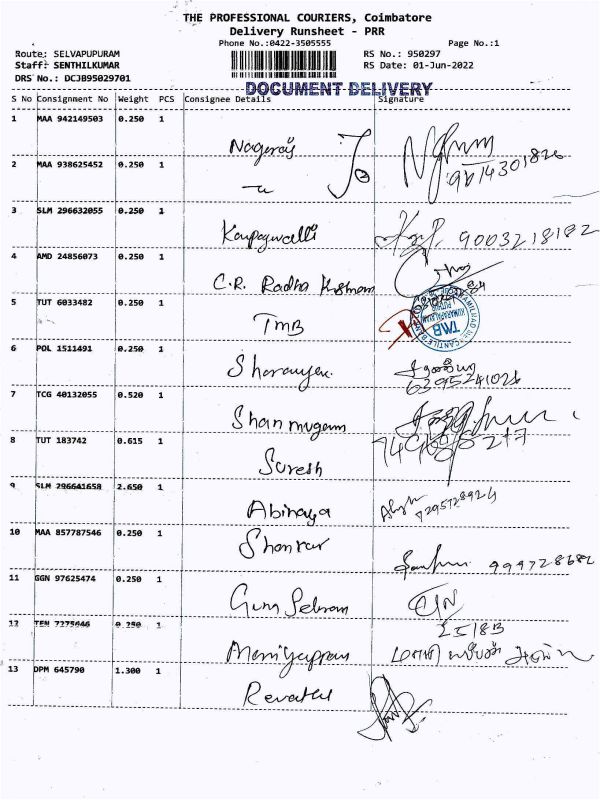 THE PROFESSIONAL COURIERS, Coimbatore
Delivery Runsheet - PRR
Phone No.:0422-3505555 Page No.:1
Route: SELVAPUPURAM RS No.: 950297
Staff: SENTHILKUMAR RS Date: 01-Jun-2022
DRS No.: DCJB95029701
DOCUMENT DELIVERY
S No Consignment No Weight PCS Consignee Details Signature
1 MAA 942149503 0.250 1
Nagaraj
2 MAA 938625452 0.250 1
3 SLM 296632055 0.250 1
9003218182
4 AMD 24856073 0.250 1
C.R. Radha Krishnan
5 TUT 6033482 0.250 1
TMB
TMB
6 POL 1511491 0.250 1
6395241026
7 TCG 40132055 0.520 1
Shanmugam
8 TUT 183742 0.615 1
Suresh
9 SLM 296641658 2.650 1
Abinaya
10 MAA 857787546 0.250 1
Shankar
11 GGN 97625474 0.250 1
12 TEN 7275646 0.250 1
Maniyappan
13 DPM 645790 1.300 1
Revathi